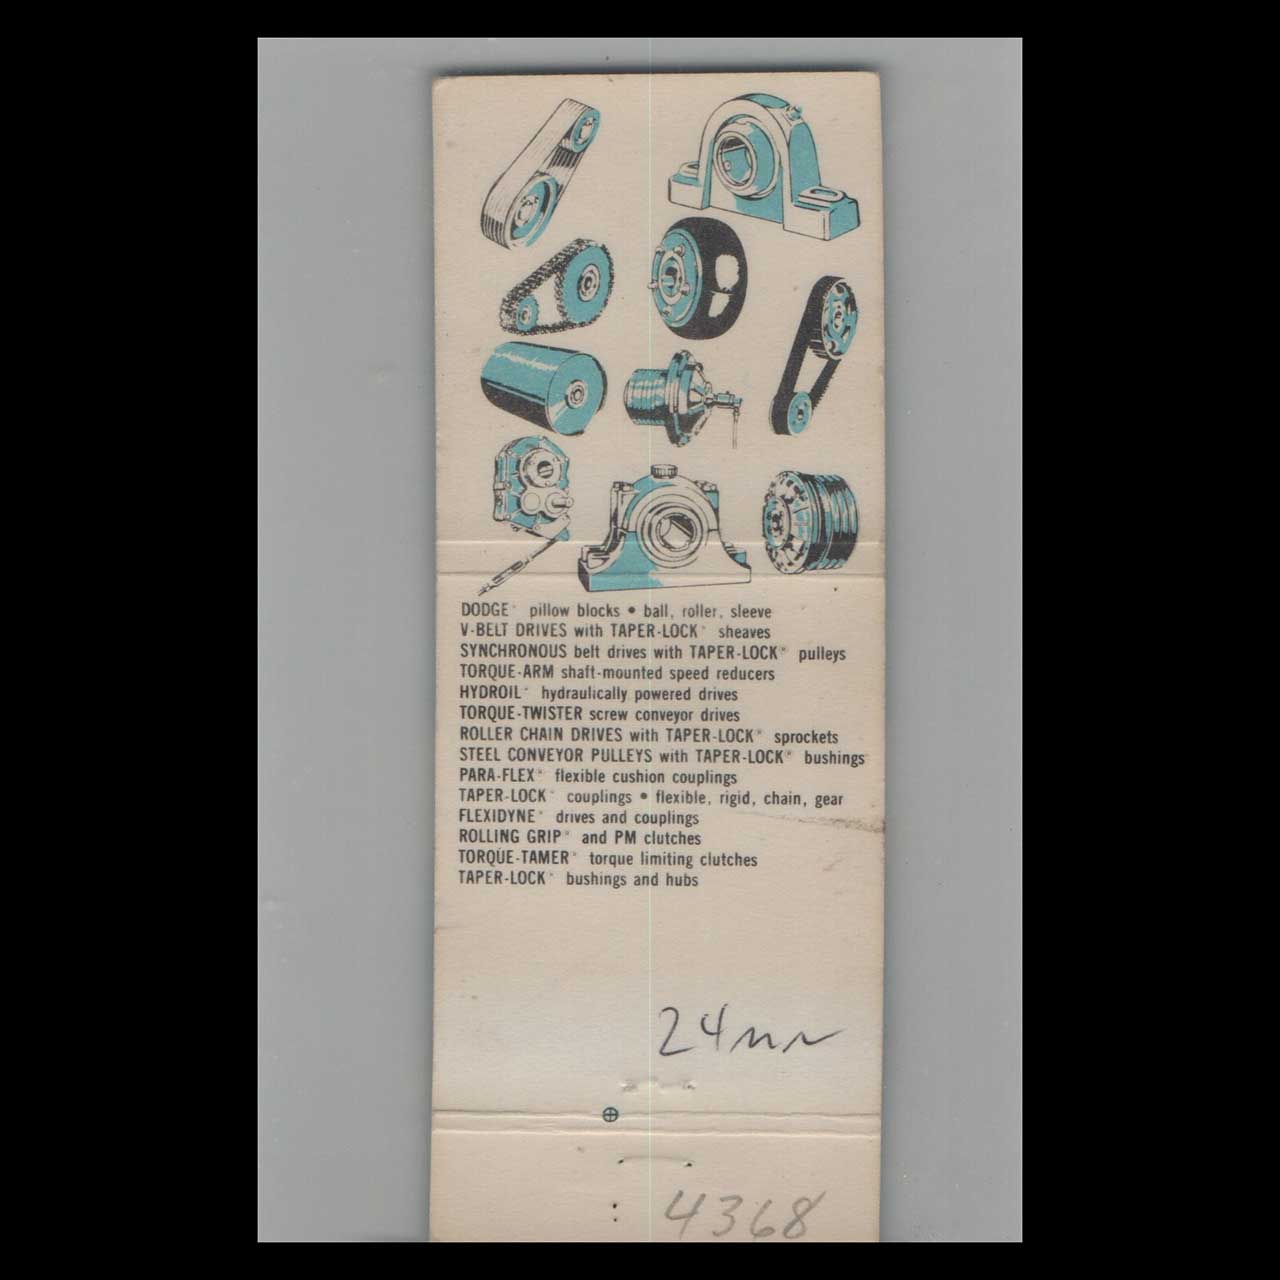 DODGE® pillow blocks • ball, roller, sleeve
V-BELT DRIVES with TAPER-LOCK® sheaves
SYNCHRONOUS belt drives with TAPER-LOCK® pulleys
TORQUE-ARM shaft-mounted speed reducers
HYDROIL® hydraulically powered drives
TORQUE-TWISTER screw conveyor drives
ROLLER CHAIN DRIVES with TAPER-LOCK® sprockets
STEEL CONVEYOR PULLEYS with TAPER-LOCK® bushings
PARA-FLEX® flexible cushion couplings
TAPER-LOCK® couplings • flexible, rigid, chain, gear
FLEXIDYNE® drives and couplings
ROLLING GRIP® and PM clutches
TORQUE-TAMER® torque limiting clutches
TAPER-LOCK® bushings and hubs
24
4368